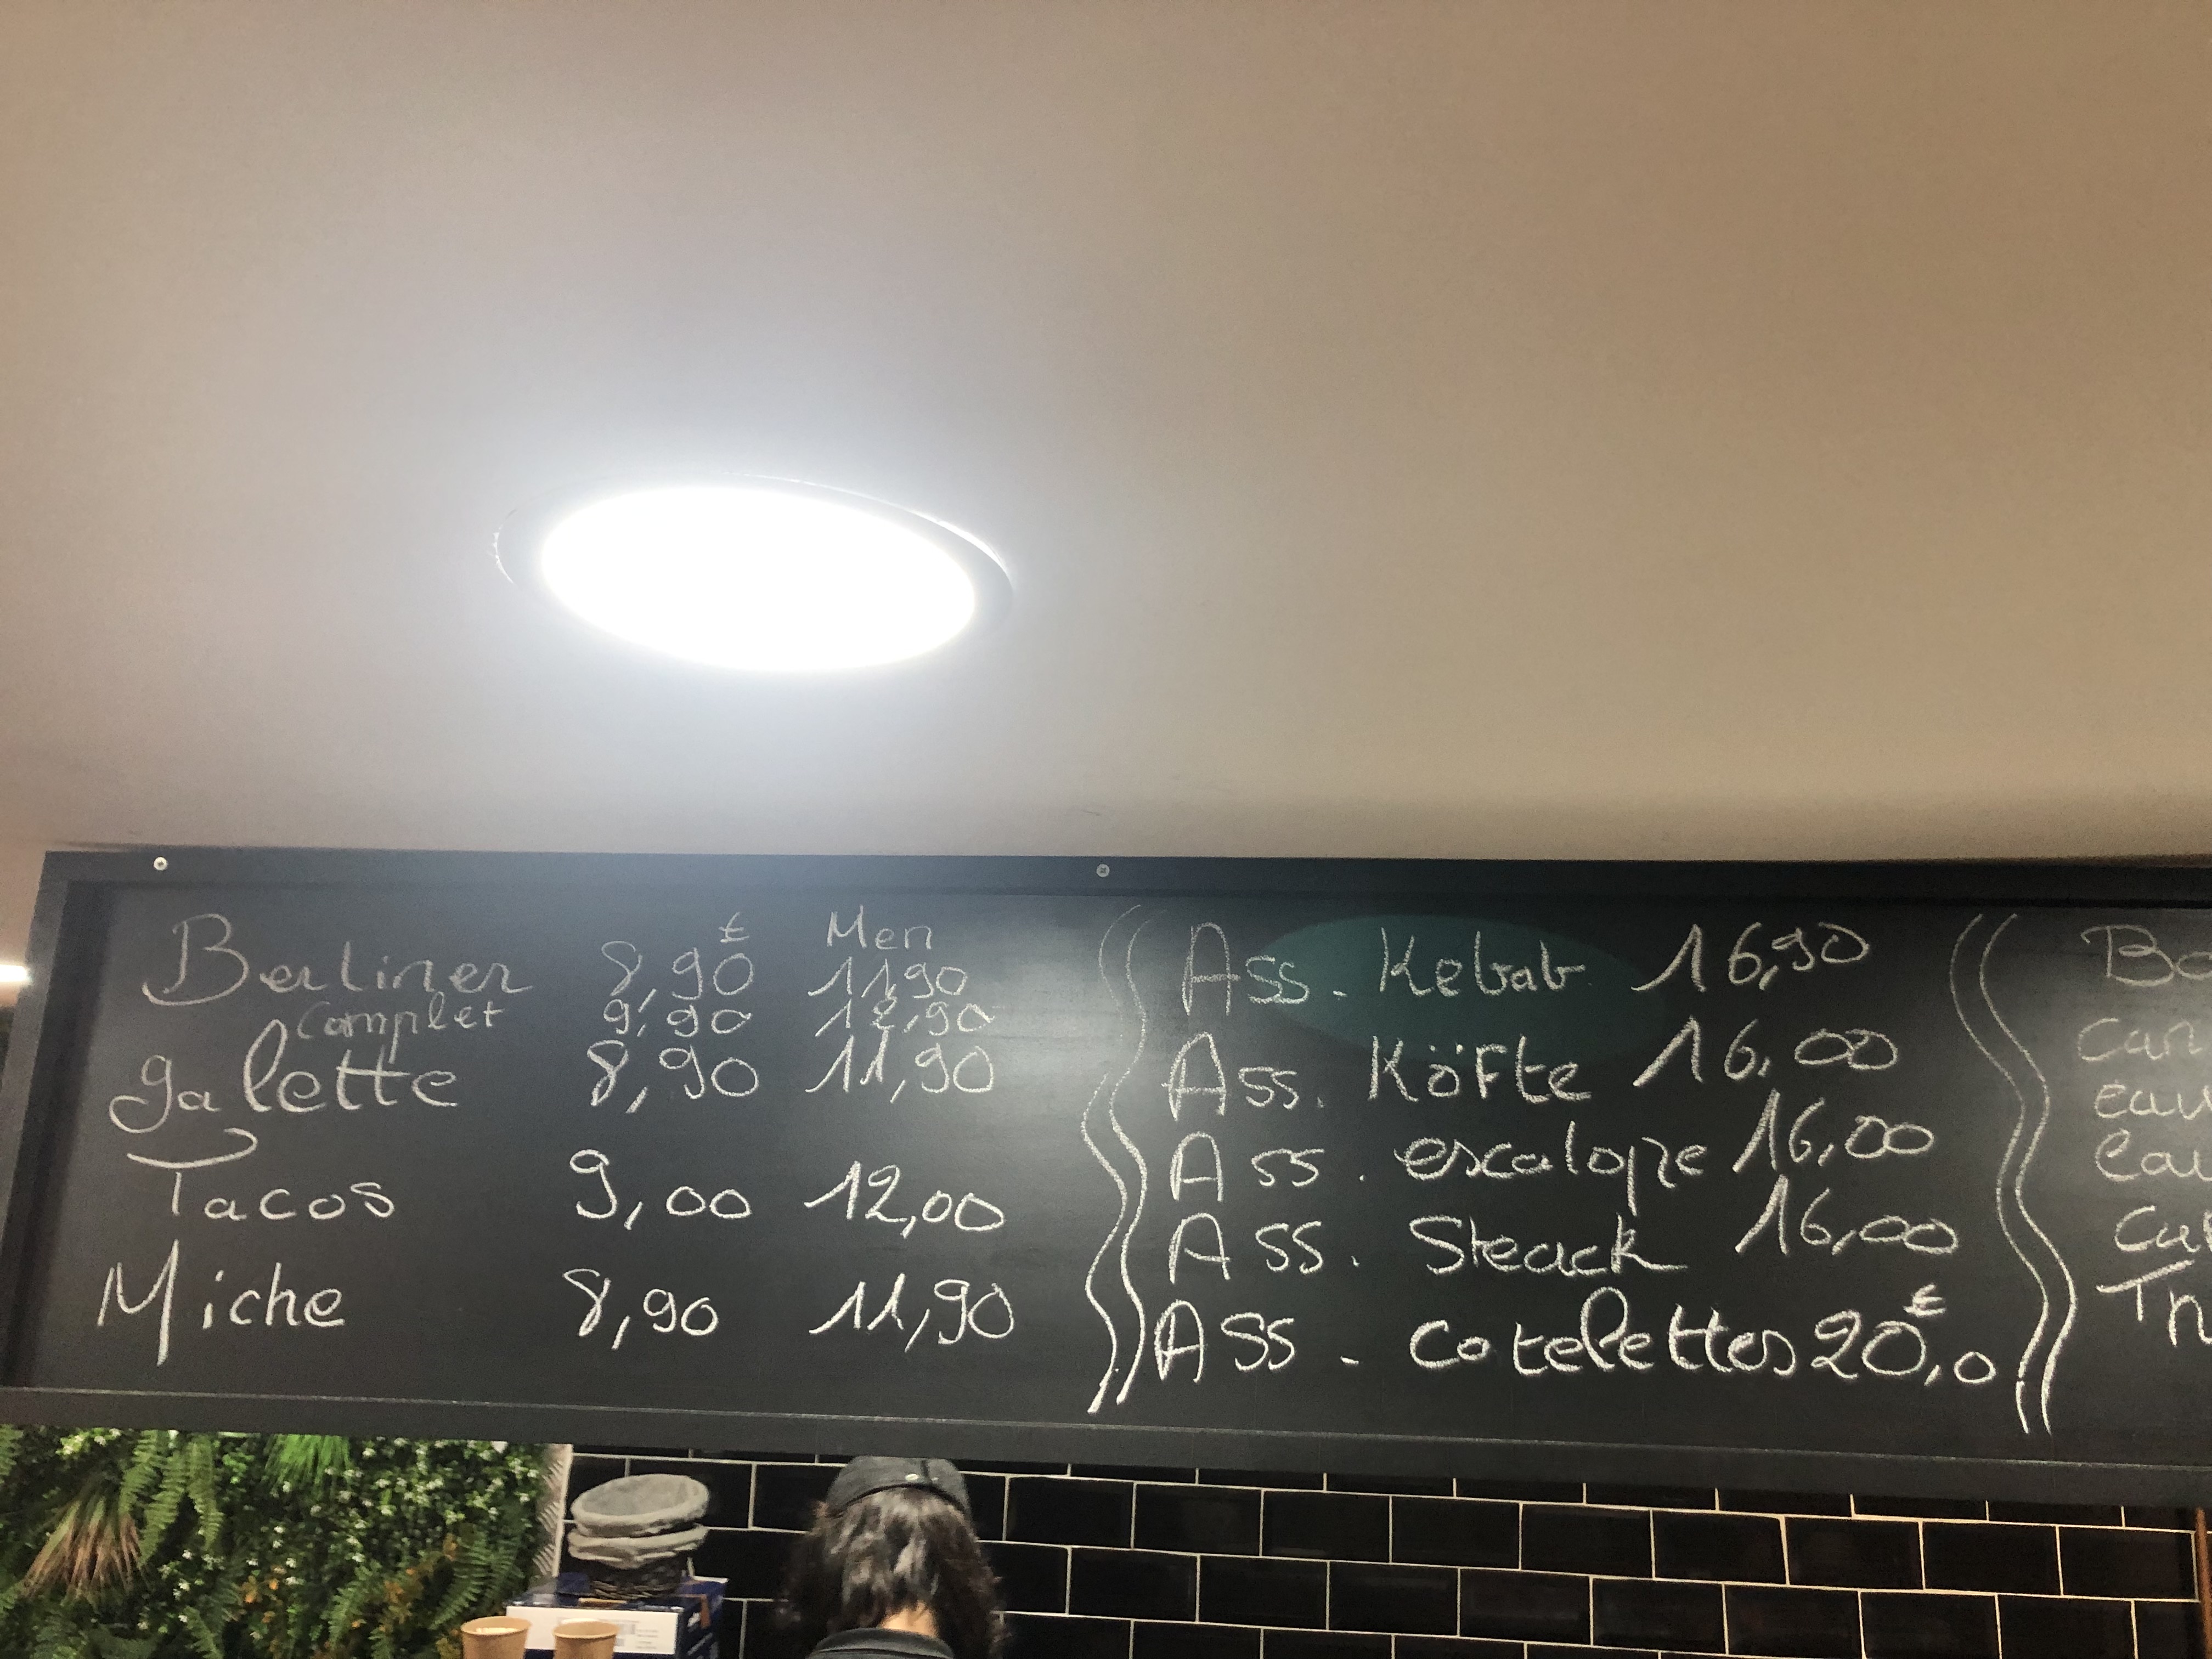 € Men
Berliner 8,90 11,90
Complet 9,90 12,90
galette 8,90 11,90
Tacos 9,00 12,00
Miche 8,90 11,90
Ass. Kebab 16,90
Ass. Köfte 16,00
Ass. escalope 16,00
Ass. Steack 16,00
Ass. Cotelettes 20,0 €